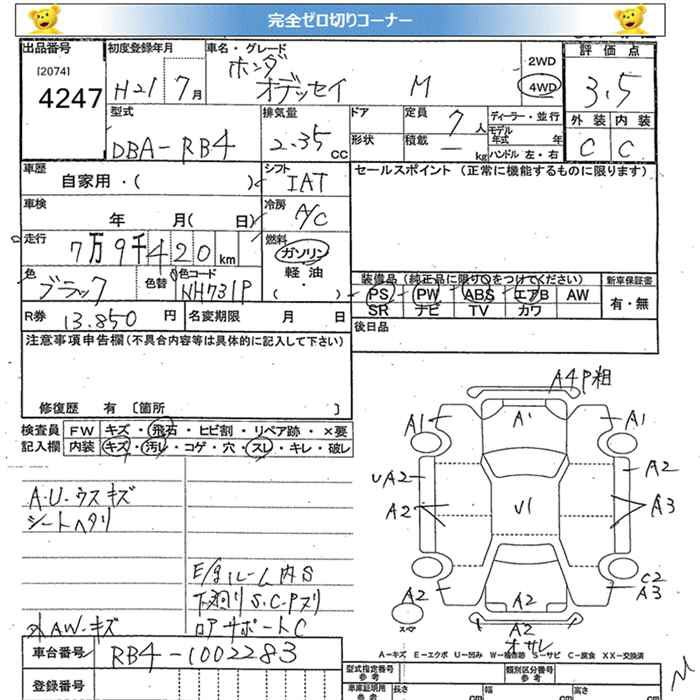 完全ゼロ切りコーナー
出品番号
[2074]
4247
初度登録年月
H21 7月
車名・グレード
ホンダ
オデッセイ M
2WD
4WD
評価点
3.5
外装 内装
C C
型式
DBA-RB4
排気量
2.35 CC
ドア
形状
定員 7人
積載 - kg
ディーラー・並行
モデル
年式 年
ハンドル 左・右
車歴
自家用・( )
シフト
IAT
セールスポイント (正常に機能するものに限ります)
車検
年 月( 日)
冷房
A/C
走行
7万9千420km
燃料
ガソリン
軽油
( ・ )
色
ブラック
色替
色コード
NH731P
装備品 (純正品に限り○をつけてください)
PS PW ABS エアB AW
SR ナビ TV カワ
新車保証書
有・無
R券 13.850円
名変期限 月 日
後日品
注意事項申告欄(不具合内容等は具体的に記入して下さい)
修復歴 有 〔箇所 〕
検査員 FW キズ・飛石・ヒビ割・リペア跡・×要
記入欄 内装 キズ・汚レ・コゲ・穴・スレ・キレ・破レ
A.U.ウスキズ
シートヘタリ
E/gルーム内S
下廻りS.C.Pヌリ
AW.キズ
ロアサポートC
A4P粗
A1 A' A1
UA2 A2
A2 U1 A3
C2
A2 A2 A3
スペア
A2
オサレ
車台番号 RB4-1002283
登録番号
A-キズ E-エクボ U-凹み W-補修跡 S-サビ C-腐食 XX-交換済
型式指定番号
参考
類別区分番号
参考
車庫証明用
参考
長さ cm
幅 cm
高さ cm